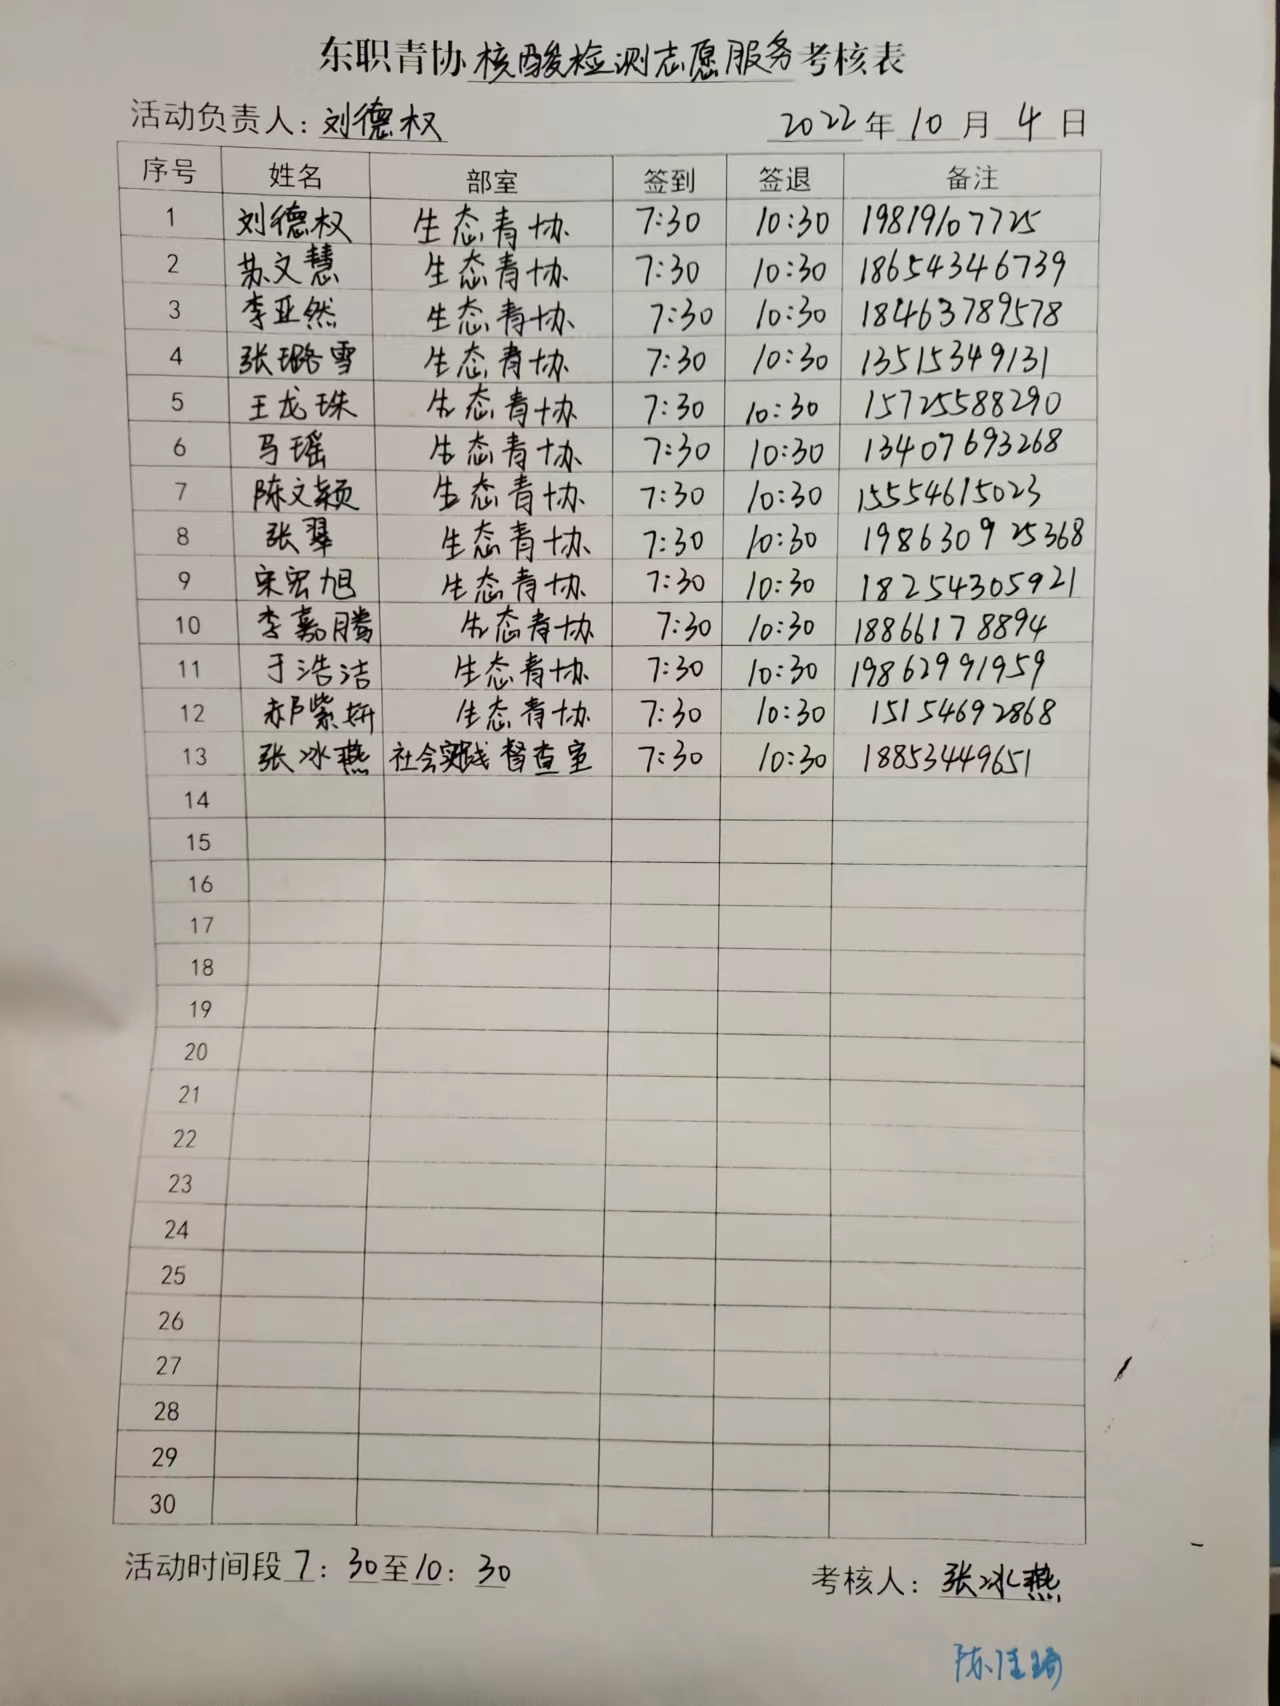 东职青协核酸检测志愿服务考核表
活动负责人：刘德权 2022年10月4日
序号 姓名 部室 签到 签退 备注
1 刘德权 生态青协 7:30 10:30 19819107725
2 苏文慧 生态青协 7:30 10:30 18654346739
3 李亚然 生态青协 7:30 10:30 18463789578
4 张璐雪 生态青协 7:30 10:30 13515349131
5 王龙珠 生态青协 7:30 10:30 15725588290
6 马瑶 生态青协 7:30 10:30 13407693268
7 陈文颖 生态青协 7:30 10:30 15554615023
8 张翠 生态青协 7:30 10:30 198630925368
9 宋宏旭 生态青协 7:30 10:30 18254305921
10 李嘉腾 生态青协 7:30 10:30 18866178894
11 于浩洁 生态青协 7:30 10:30 19862991959
12 郝紫妍 生态青协 7:30 10:30 15154692868
13 张冰燕 社会实践督查室 7:30 10:30 18853449651
14
15
16
17
18
19
20
21
22
23
24
25
26
27
28
29
30
活动时间段7：30至10：30 考核人：张冰燕
陈佳琦